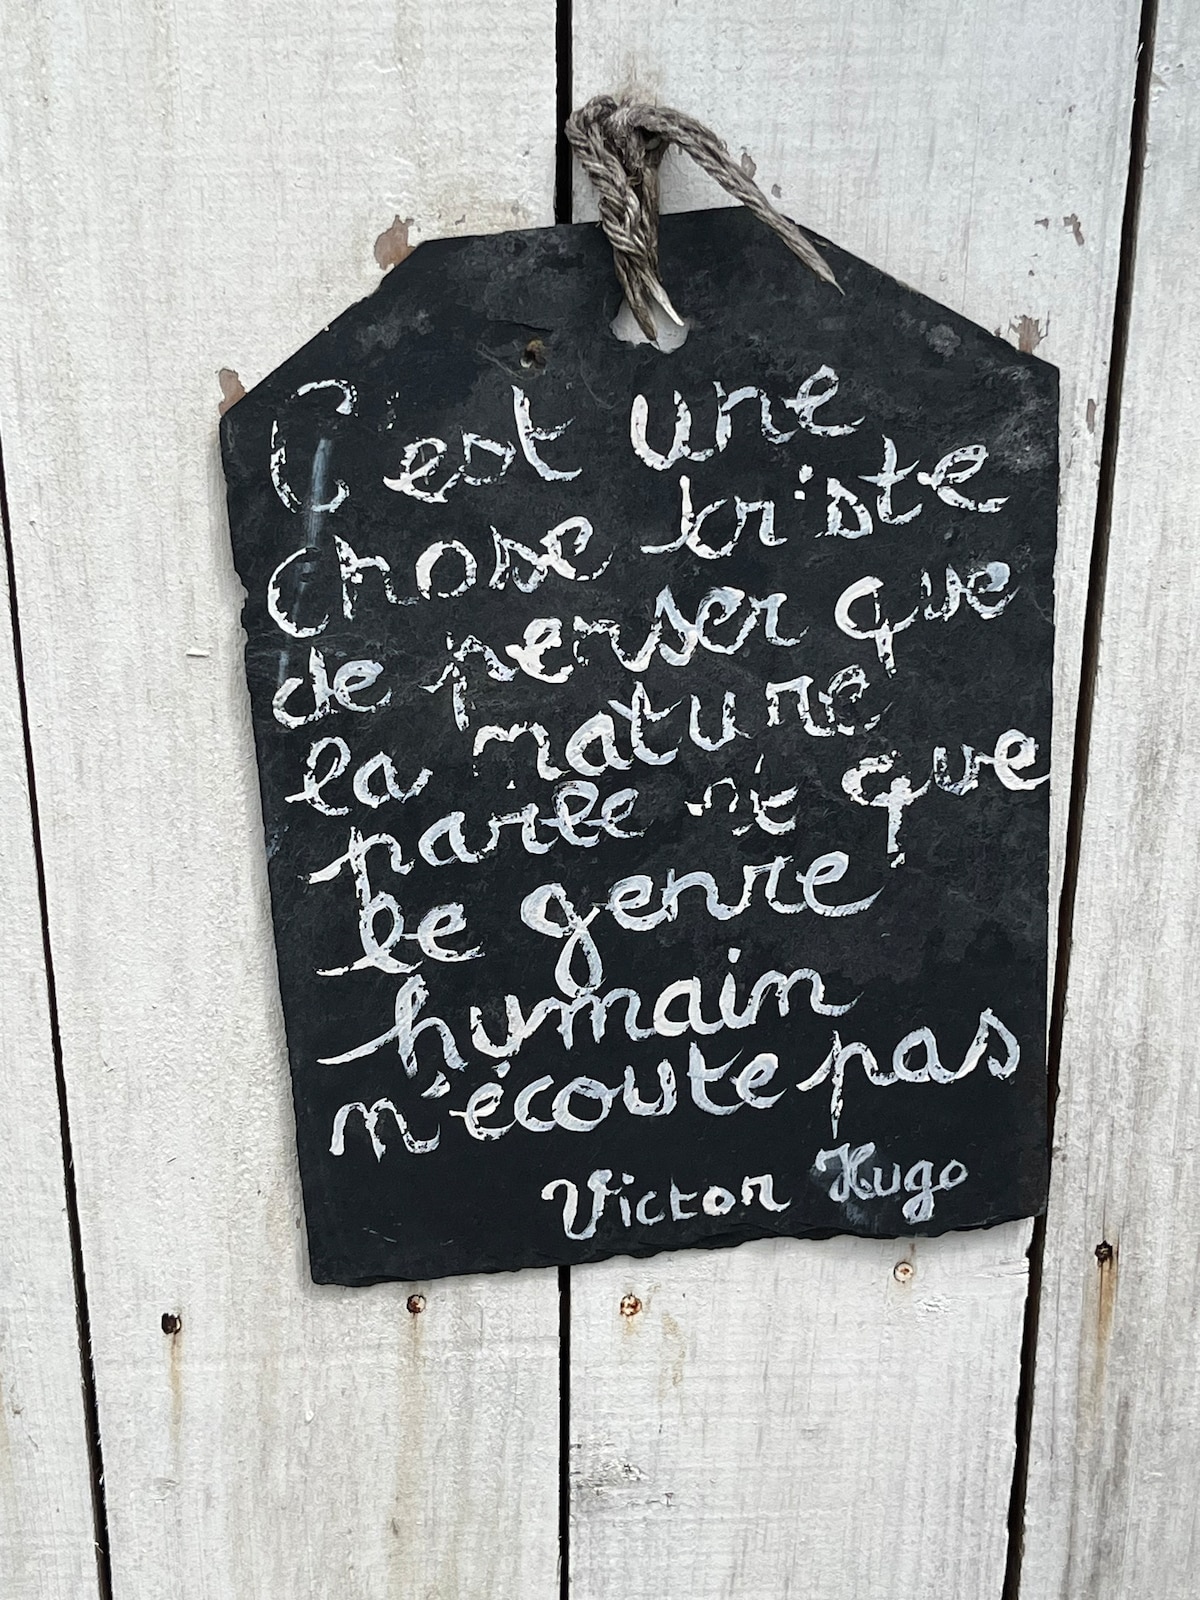 C'est une
chose triste
de penser que
la nature
parle et que
le genre
humain
n'écoute pas
Victor Hugo